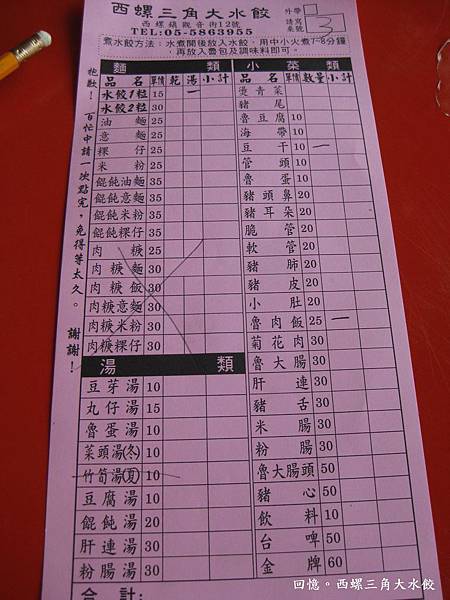 西螺三角大水餃
西螺鎮觀音街12號
TEL:05-5863955
外帶
請寫
桌號
3
煮水餃方法：水煮開後放入水餃，用中小火煮7~8分鐘，
再放入魯包及調味料即可
抱歉！百忙中請一次點完，免得等太久。謝謝！
麵 類
品名 單價 乾 湯 小計
水餃1粒 15 一
水餃2粒 30
油麵 25
意麵 25
粿仔 25
米粉 25
餛飩油麵 35
餛飩意麵 35
餛飩米粉 35
餛飩粿仔 35
肉焿 25
肉焿麵 30
肉焿飯 30
肉焿意麵 30
肉焿米粉 30
肉焿粿仔 30
湯 類
豆芽湯 10
丸仔湯 15
魯蛋湯 10
菜頭湯(冬) 10
竹筍湯(夏) 10
豆腐湯 10
餛飩湯 20
肝連湯 30
粉腸湯 30
合計:
小菜類
品名 單價 數量 小計
燙青菜
豬尾
魯豆腐 10
海帶 10
豆干 10 一
管頭 10
魯蛋 10
豬頭鼻 20
豬耳朵 20
脆管 20
軟管 20
豬肺 20
豬皮 20
小肚 20
魯肉飯 25 一
菊花肉 30
魯大腸 30
肝連 30
豬舌 30
米腸 30
粉腸 30
魯大腸頭 50
豬心 50
飲料 10
台啤 50
金牌 60
回憶。西螺三角大水餃